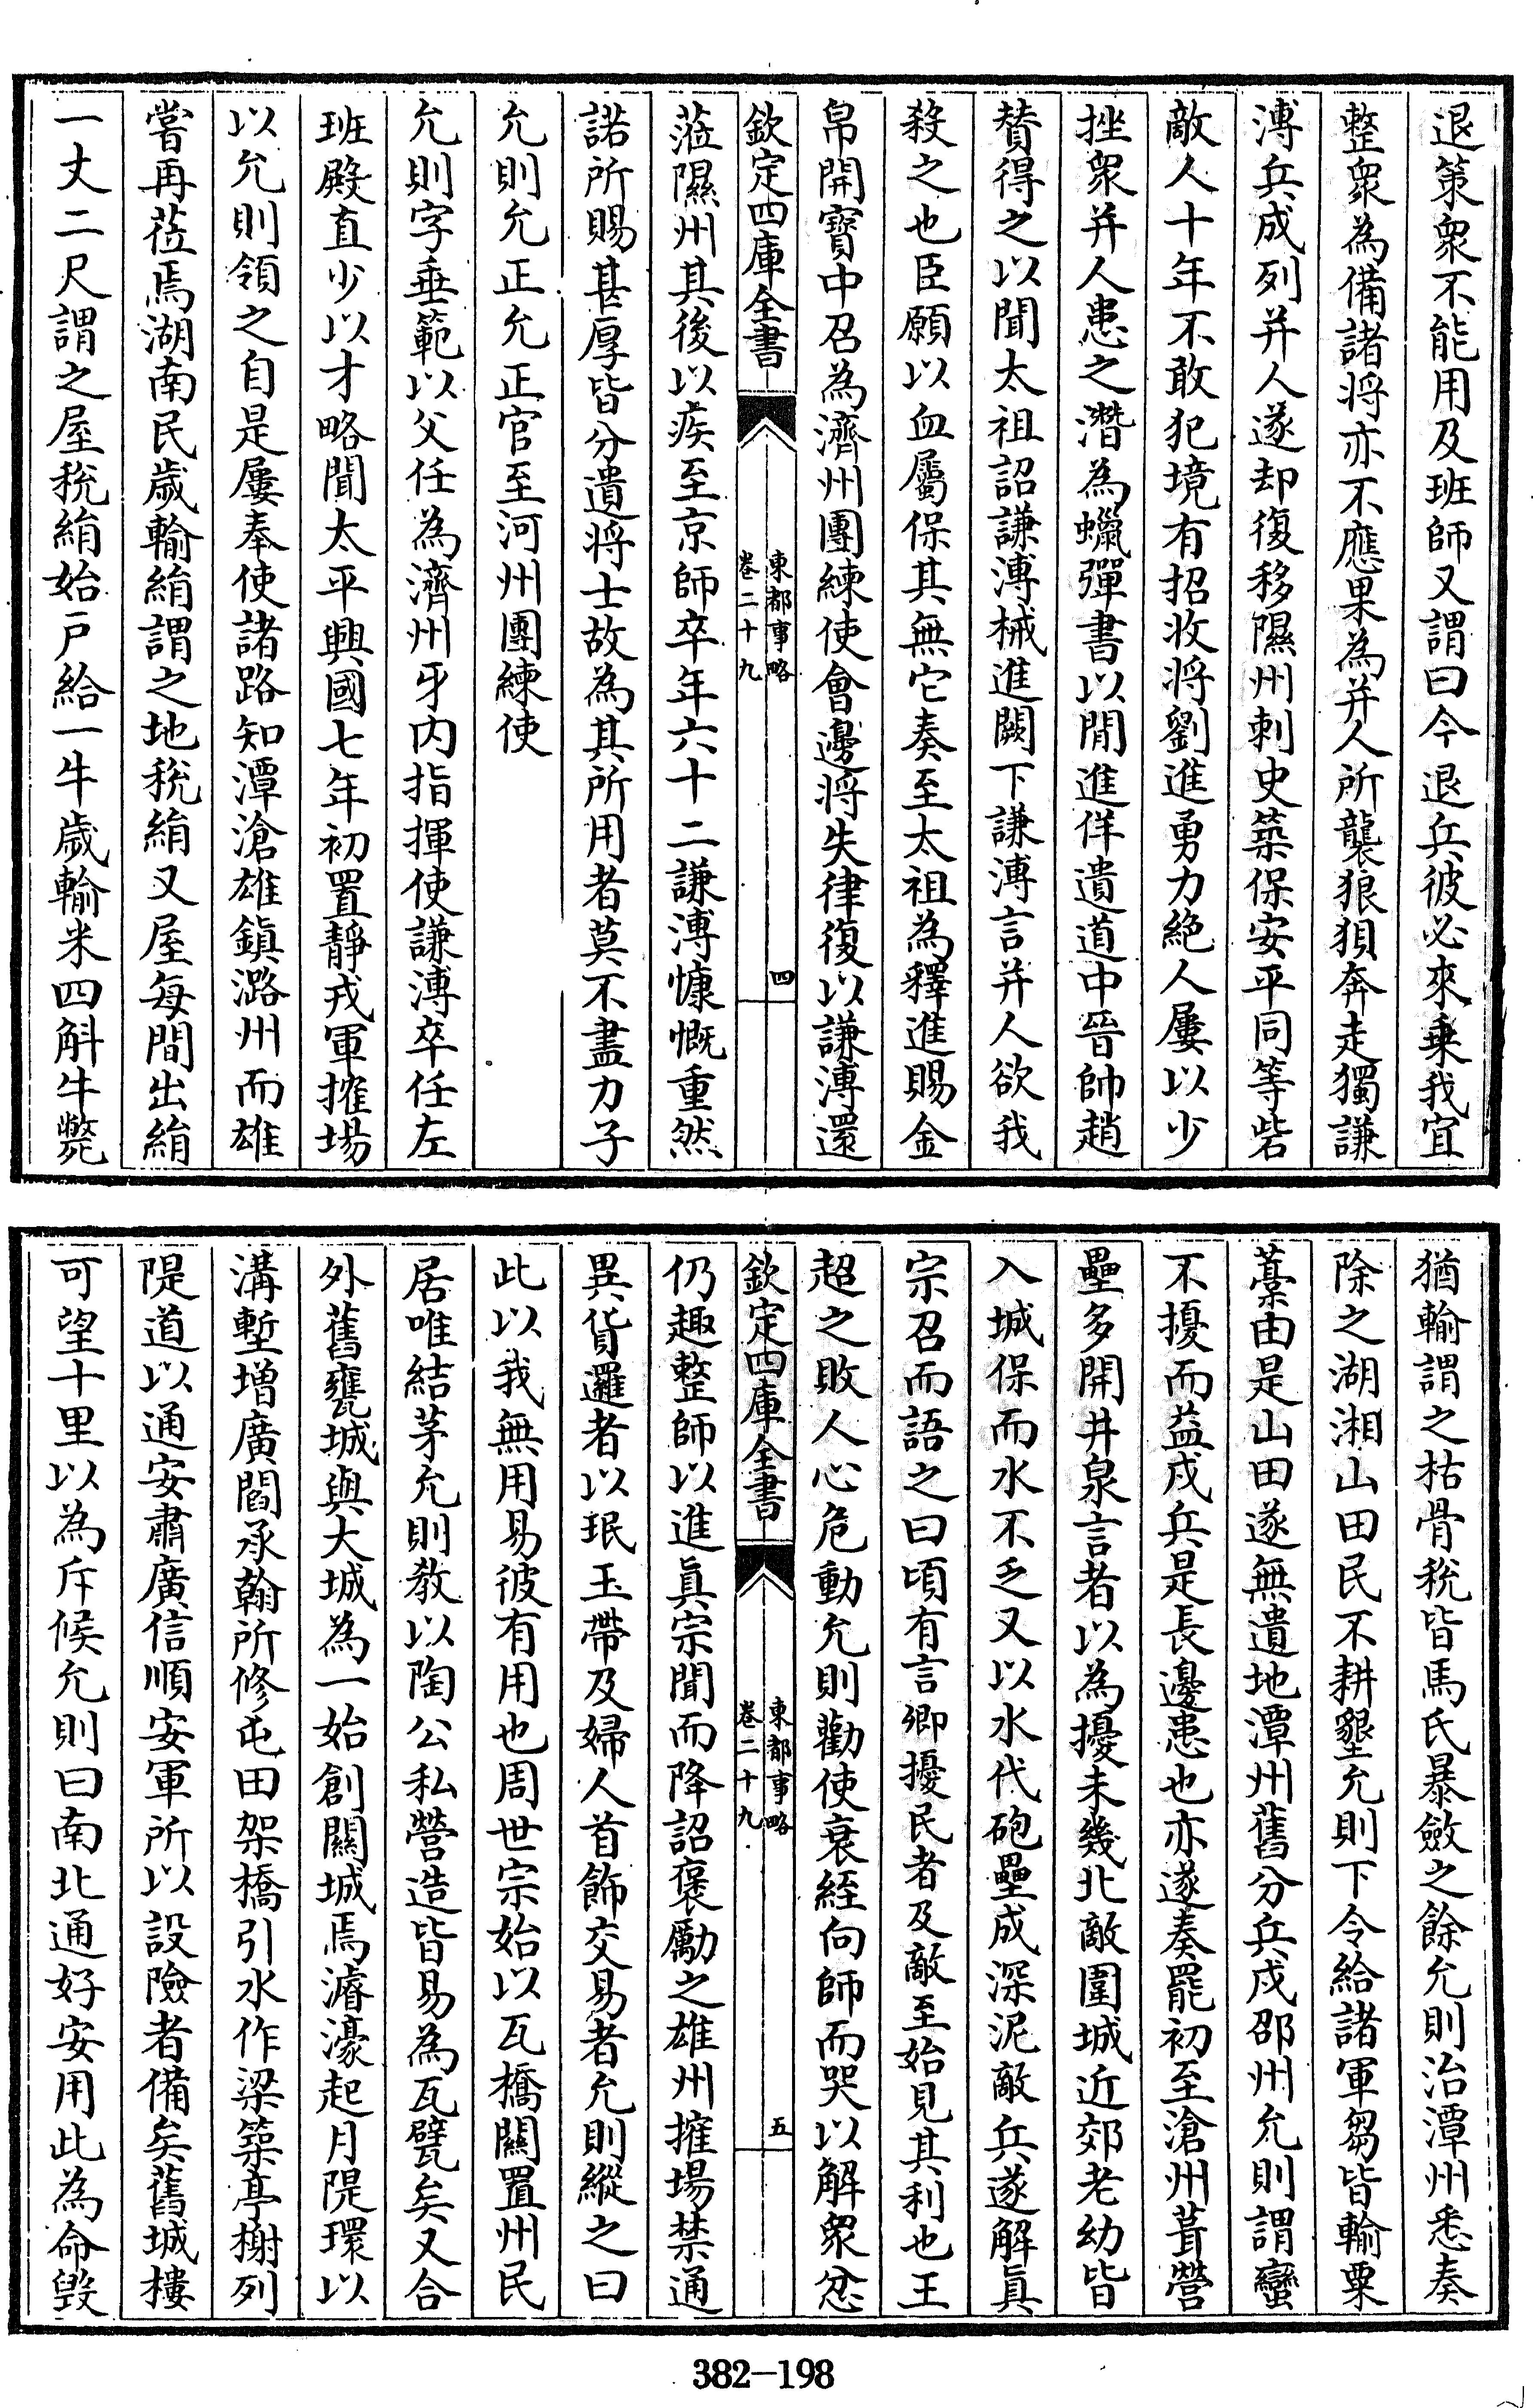 退策衆不能用及班師又謂曰今退兵彼必來乗我宜
整衆為備諸将亦不應果為并人所襲狼狽奔走獨謙
溥兵成列并人遂却復移隰州刺史築保安平同等砦
敵人十年不敢犯境有招收将劉進勇力絶人屢以少
挫衆并人患之潛為蠟彈書以閒進佯遺道中晉帥趙
賛得之以聞太祖詔謙溥械進闕下謙溥言并人欲我
殺之也臣願以血屬保其無它奏至太祖為釋進賜金
帛開寳中召為濟州團練使會邊将失律復以謙溥還
欽定四庫全書
東都事略
卷二十九
四
蒞隰州其後以疾至京師卒年六十二謙溥慷慨重然
諾所賜甚厚皆分遺将士故為其所用者莫不盡力子
允則允正允正官至河州團練使
允則字垂範以父任為濟州牙内指揮使謙溥卒任左
班殿直少以才略聞太平興國七年初置靜戎軍搉場
以允則領之自是屢奉使諸路知潭滄雄鎮潞州而雄
嘗再蒞焉湖南民歲輸絹謂之地稅絹又屋每間出絹
一丈二尺謂之屋稅絹始戸給一牛歲輸米四斛牛斃
猶輸謂之枯骨稅皆馬氏暴斂之餘允則治潭州悉奏
除之湖湘山田民不耕墾允則下令給諸軍芻皆輸粟
藁由是山田遂無遺地潭州舊分兵戍邵州允則謂蠻
不擾而益戍兵是長邊患也亦遂奏罷初至滄州葺營
壘多開井泉言者以為擾未幾北敵圍城近郊老幼皆
入城保而水不乏又以水代砲壘成深泥敵兵遂解眞
宗召而語之曰頃有言卿擾民者及敵至始見其利也王
超之敗人心危動允則勸使衰絰向師而哭以解衆忿
欽定四庫全書
東都事略
卷二十九
五
仍趣整師以進眞宗聞而降詔褒勵之雄州搉場禁通
異貨邏者以珉玉帶及婦人首飾交易者允則縱之曰
此以我無用易彼有用也周世宗始以瓦橋關置州民
居唯結茅允則教以陶公私營造皆易為瓦甓矣又合
外舊甕城與大城為一始創關城焉濬濠起月隄環以
溝塹增廣閻承翰所修屯田架橋引水作梁築亭榭列
隄道以通安肅廣信順安軍所以設險者備矣舊城樓
可望十里以為斥候允則曰南北通好安用此為命毁
382-198